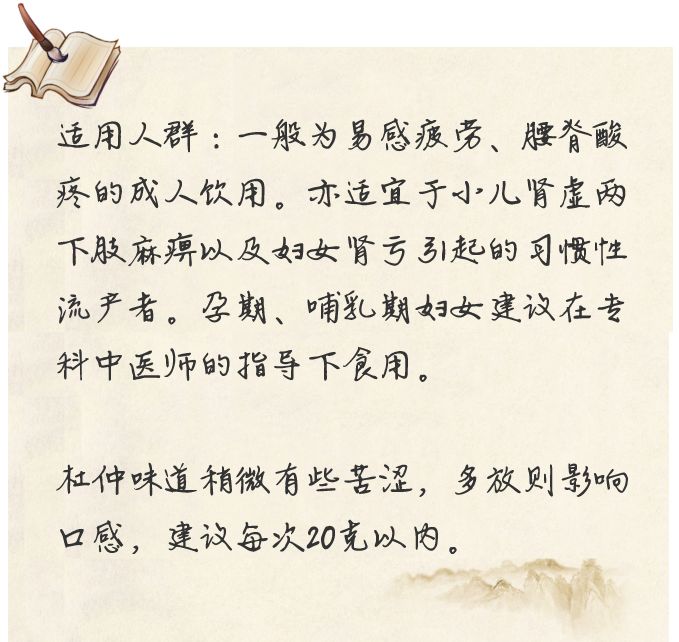 适用人群：一般为易感疲劳、腰脊酸
疼的成人饮用。亦适宜于小儿肾虚两
下肢麻痹以及妇女肾亏引起的习惯性
流产者。孕期、哺乳期妇女建议在专
科中医师的指导下食用。
杜仲味道稍微有些苦涩，多放则影响
口感，建议每次20克以内。